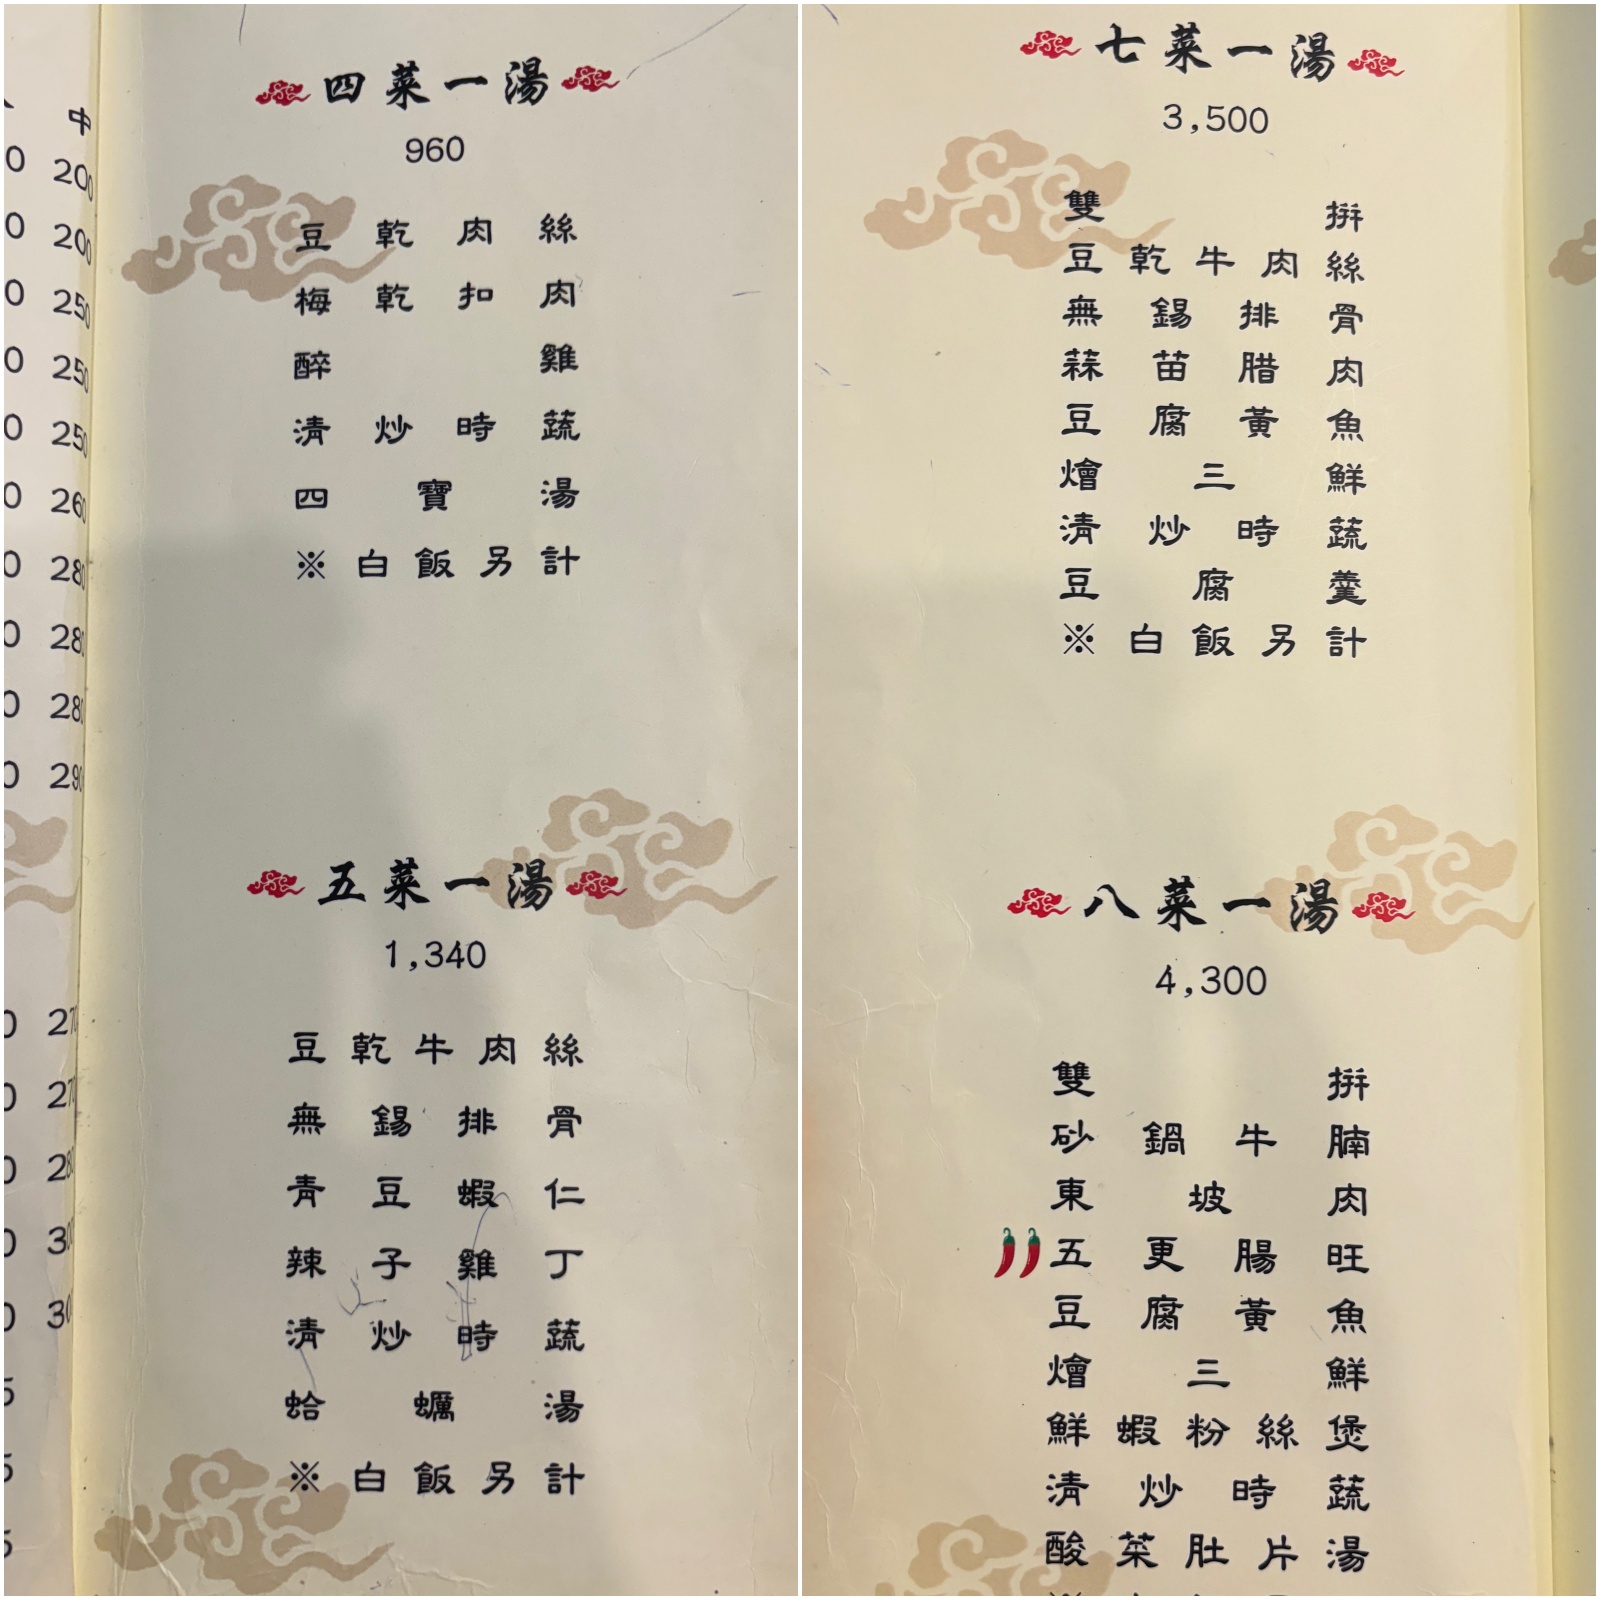 中
200
200
250
250
250
260
280
280
280
290
四菜一湯
960
豆乾肉絲
梅乾扣肉
醉雞
清炒時蔬
四寶湯
※白飯另計
五菜一湯
1,340
豆乾牛肉絲
無錫排骨
青豆蝦仁
辣子雞丁
清炒時蔬
蛤蠣湯
※白飯另計
七菜一湯
3,500
雙拼
豆乾牛肉絲
無錫排骨
蒜苗腊肉
豆腐黃魚
燴三鮮
清炒時蔬
豆腐羹
※白飯另計
八菜一湯
4,300
雙拼
砂鍋牛腩
東坡肉
五更腸旺
豆腐黃魚
燴三鮮
鮮蝦粉絲煲
清炒時蔬
酸菜肚片湯